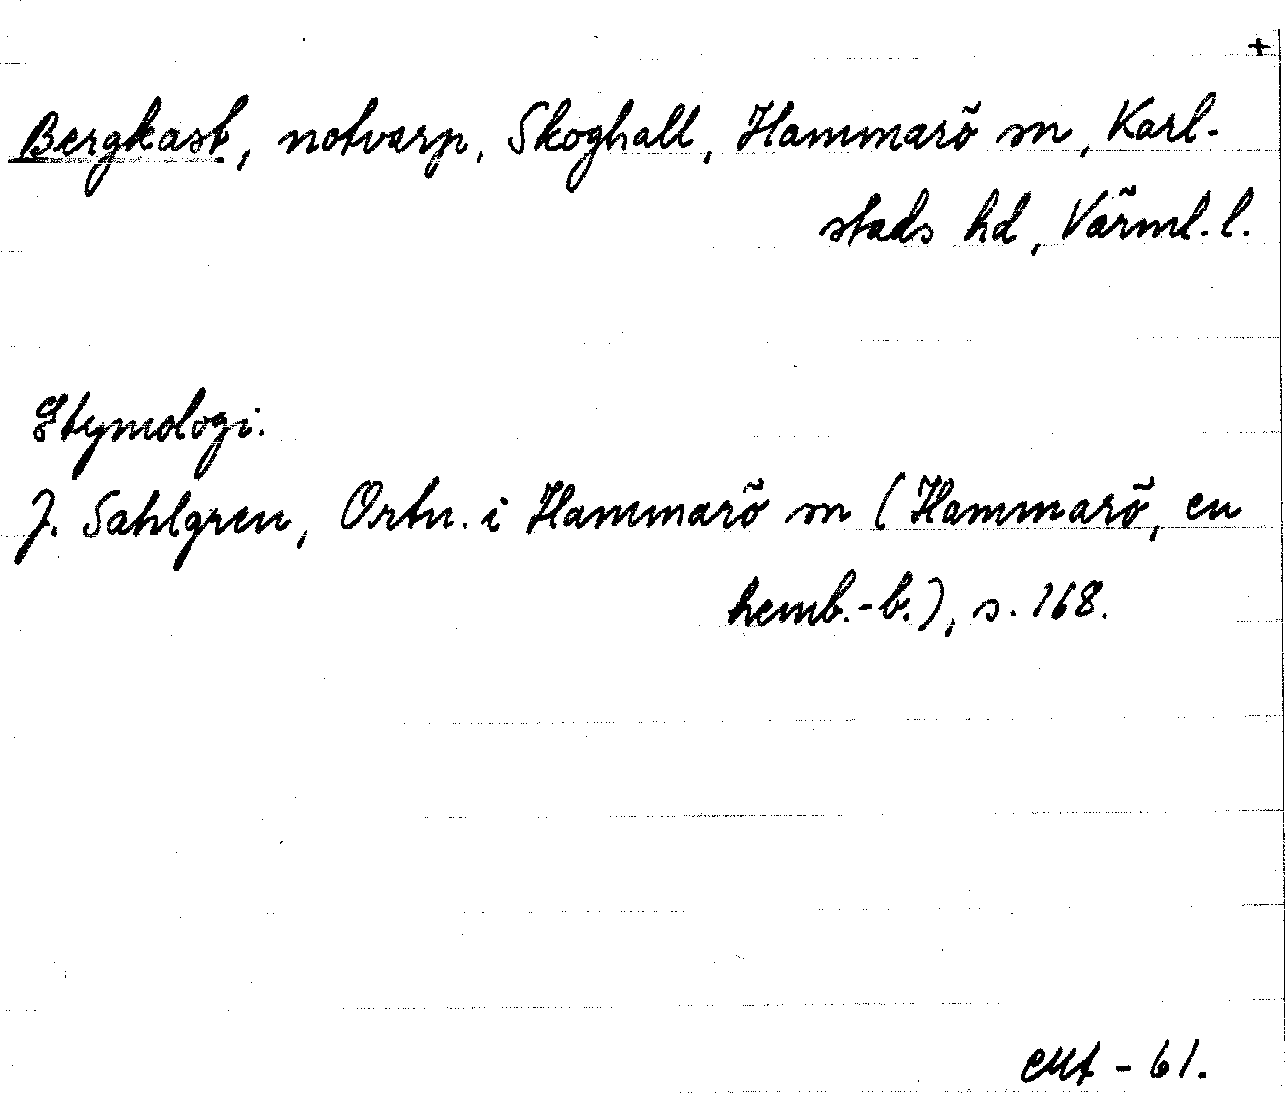 +
Bergkast, notvarp, Skoghall, Hammarö sn, Karl-
stads hd, Värml. l.
Etymologi.
J. Sahlgren, Ortn. i Hammarö sn (Hammarö, en
hemb.-b.), s. 168.
okt - 61.